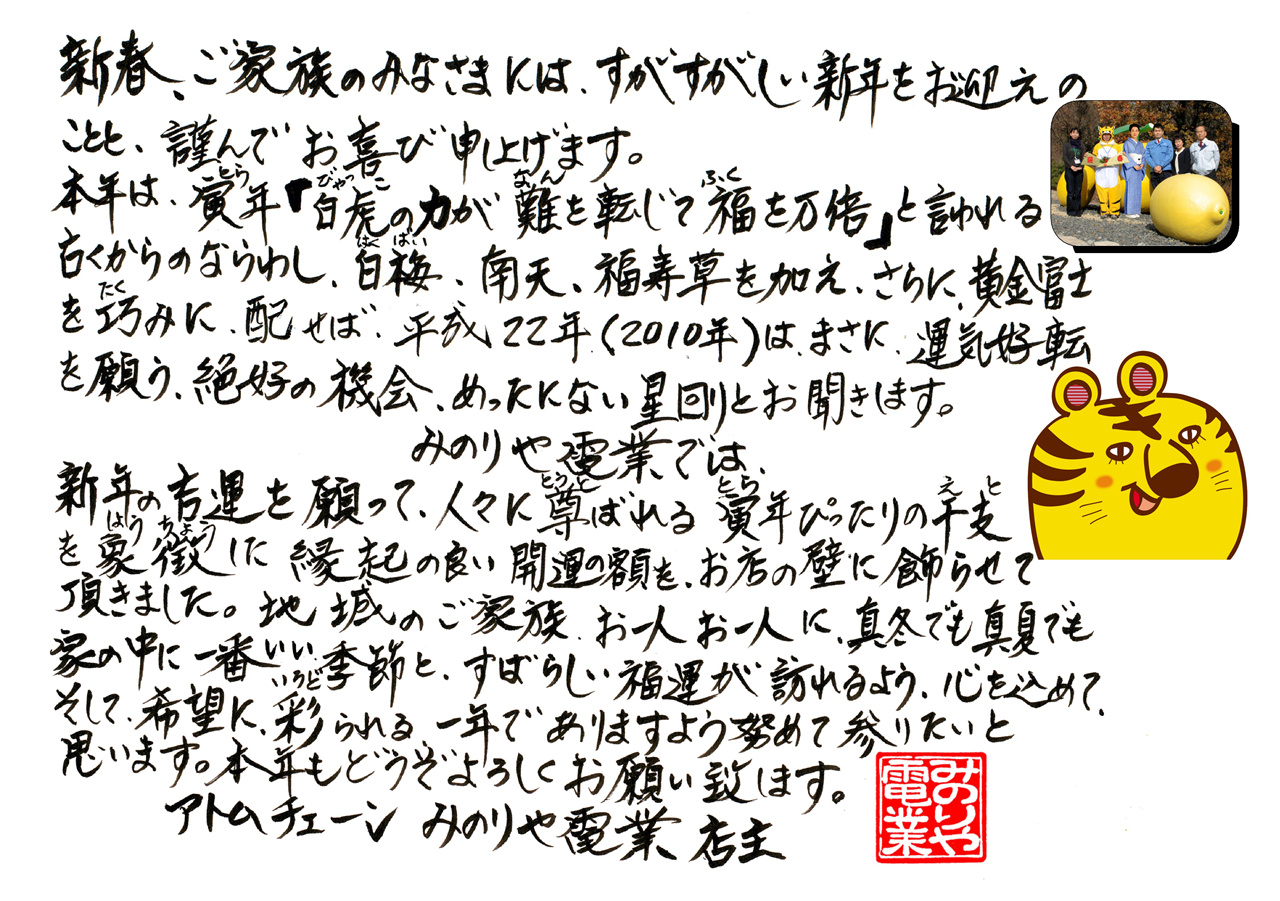 新春、ご家族のみなさまには、すがすがしい新年をお迎えの
ことと、謹んでお喜び申し上げます。
本年は、寅年「白虎の力が難を転じて福を万倍」と言われる
とら びゃっこ なん ふく
古くからのならわし、白梅、南天、福寿草を加え、さらに、黄金富士
はくばい
を巧みに、配せば、平成22年(2010年)は、まさに、運気好転
たく
を願う、絶好の機会、めったにない星回りとお聞きします。
みのりや電業では、
新年の吉運を願って、人々に尊ばれる寅年ぴったりの干支
とうと とら えと
を象徴した縁起の良い開運の額を、お店の壁に飾らせて
しょうちょう
頂きました。地域のご家族、お一人お一人に、真冬でも真夏でも
家の中に一番いい季節と、すばらしい福運が訪れるよう、心を込めて、
そして、希望に、彩られる一年でありますよう努めて参りたいと
いろど
思います。本年もどうぞよろしくお願い致します。
アトムチェーン みのりや電業 店主
みのりや
電業